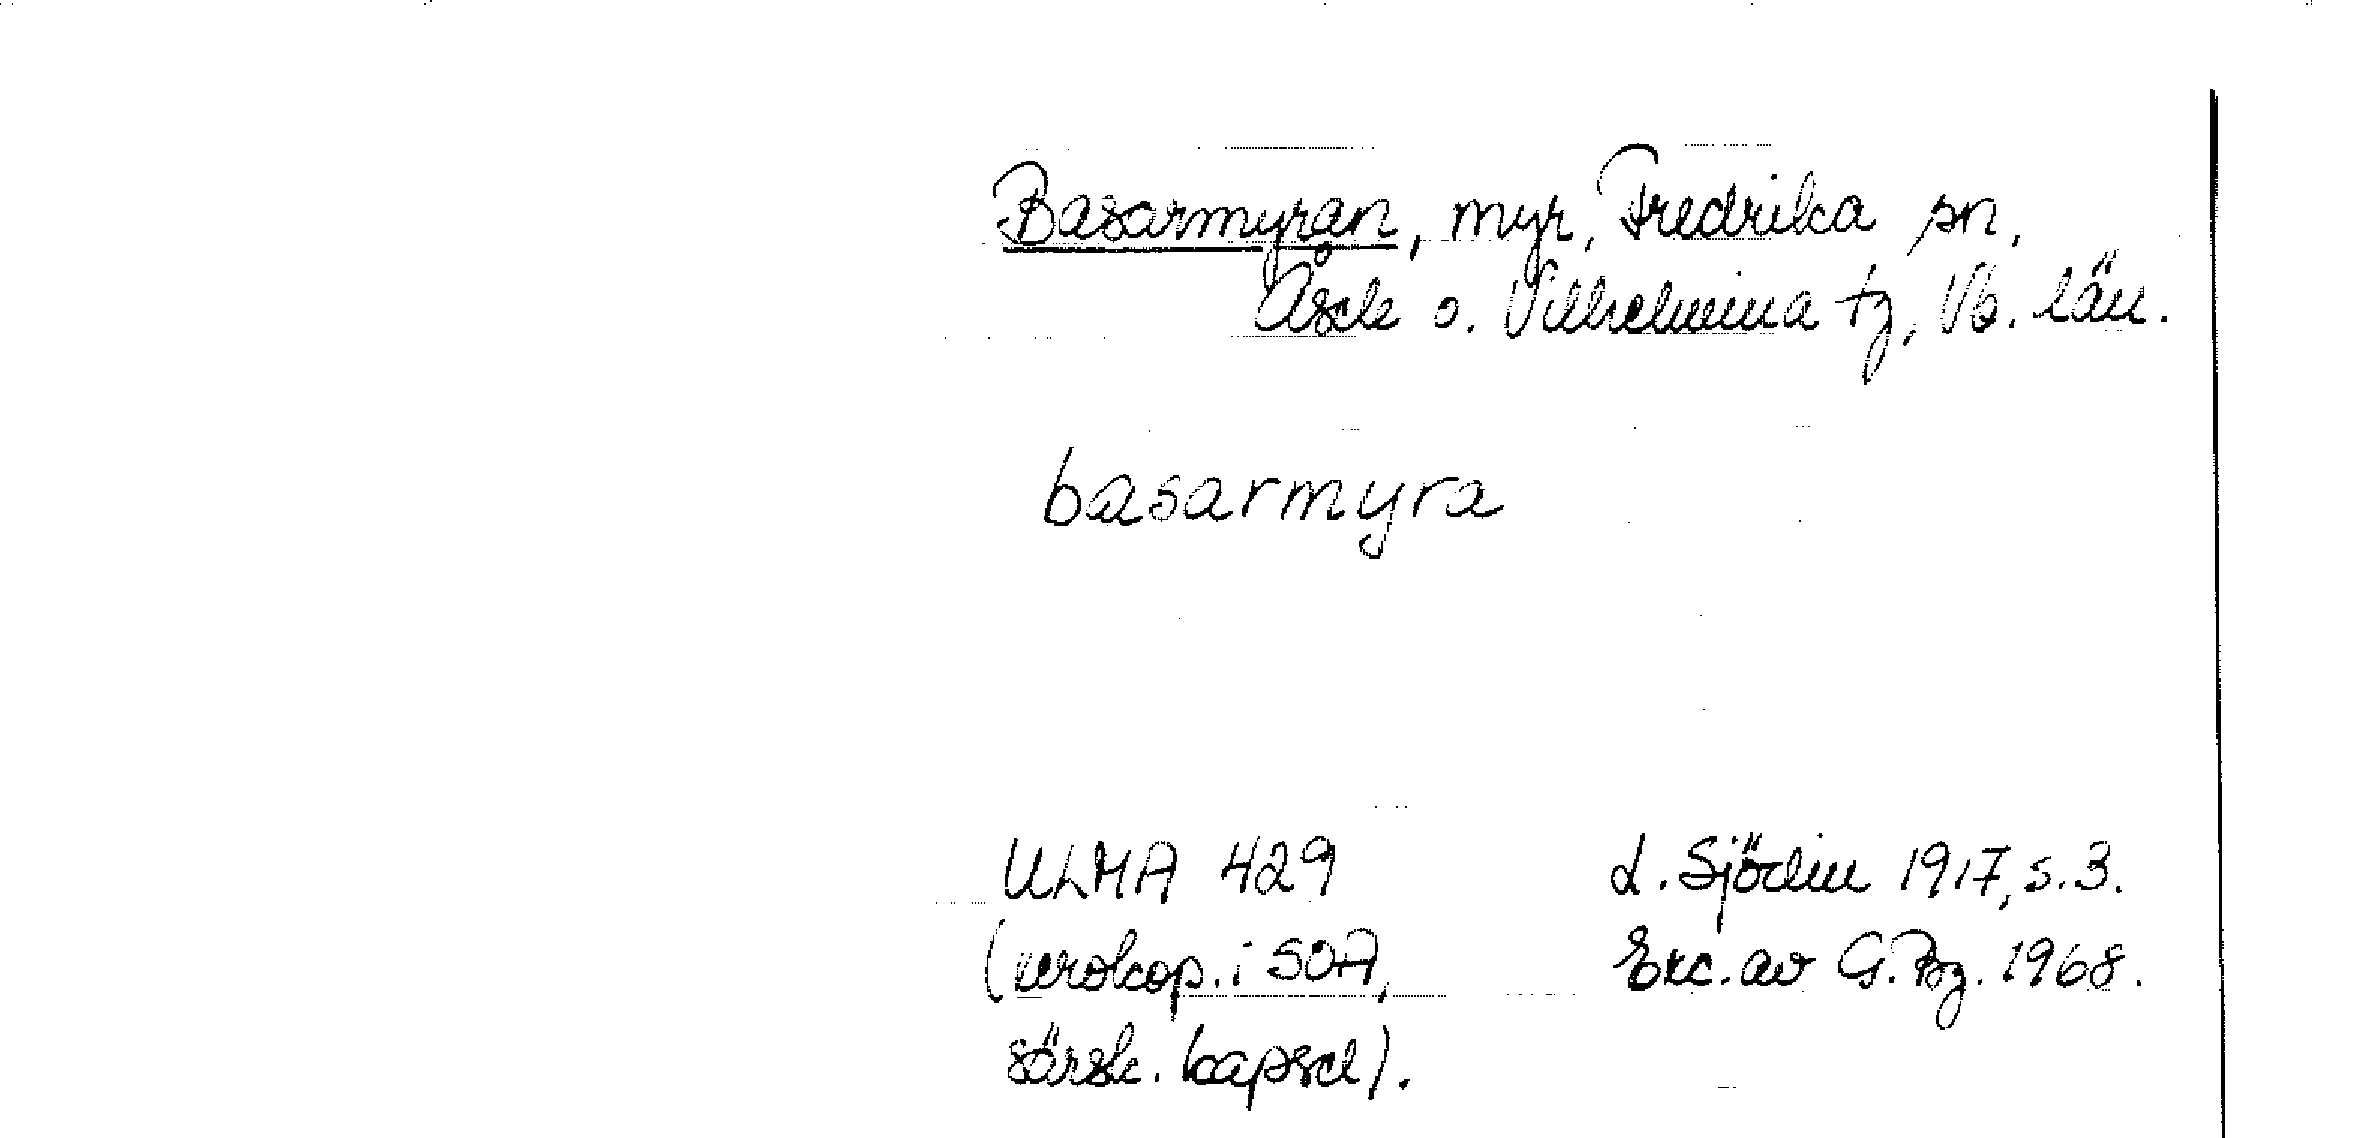 Basarmyran, myr, Fredrika sn,
Åsele o. Vilhelmina tg, Vb. län.
basarmyra
ULMA 429
L. Sjödin 1917, s. 3.
(xerokop. i SOA,
Exc. av G. Bg. 1968.
särsk. kapsel).